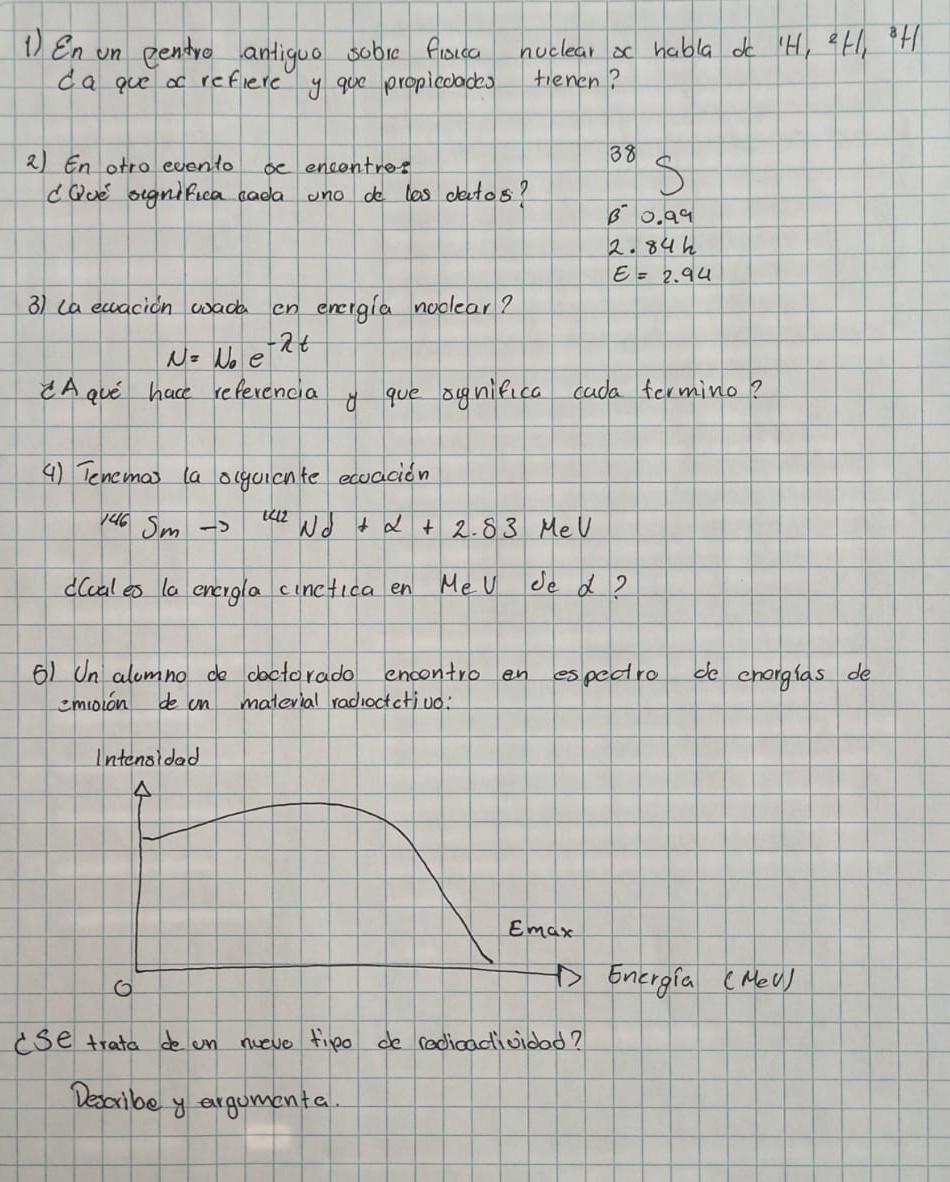 1) En un centro antiguo sobre física nuclear se habla de ¹H, ²H, ³H
¿a que se refiere y que propiedades tienen?
2) En otro evento se encontros
¿Qué significa cada uno de los datos?
³⁸S
β⁻ 0.99
2.84h
E = 2.94
3) La ecuación usada en energía nuclear?
N = N₀ e^-λt
¿A qué hace referencia y que significa cada termino?
4) Tenemos la siguiente ecuación
¹⁴⁶Sm -> ¹⁴²Nd + α + 2.53 MeV
¿Cual es la energía cinetica en MeV de α?
5) Un alumno de doctorado encontro en espectro de energías de
emisión de un material radioctctivo:
Intensidad
Emax
0
Energía (MeV)
¿Se trata de un nuevo tipo de radioactividad?
Describe y argumenta.